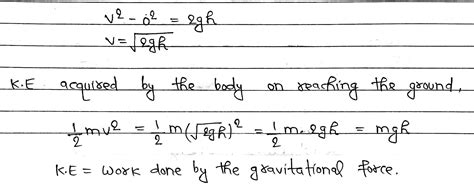 v² - o² = 2gh
v = √2gh
K.E acquired by the body on reaching the ground,
1/2 mv² = 1/2 m(√2gh)² = 1/2 m. 2gh = mgh
K.E = work done by the gravitational force.